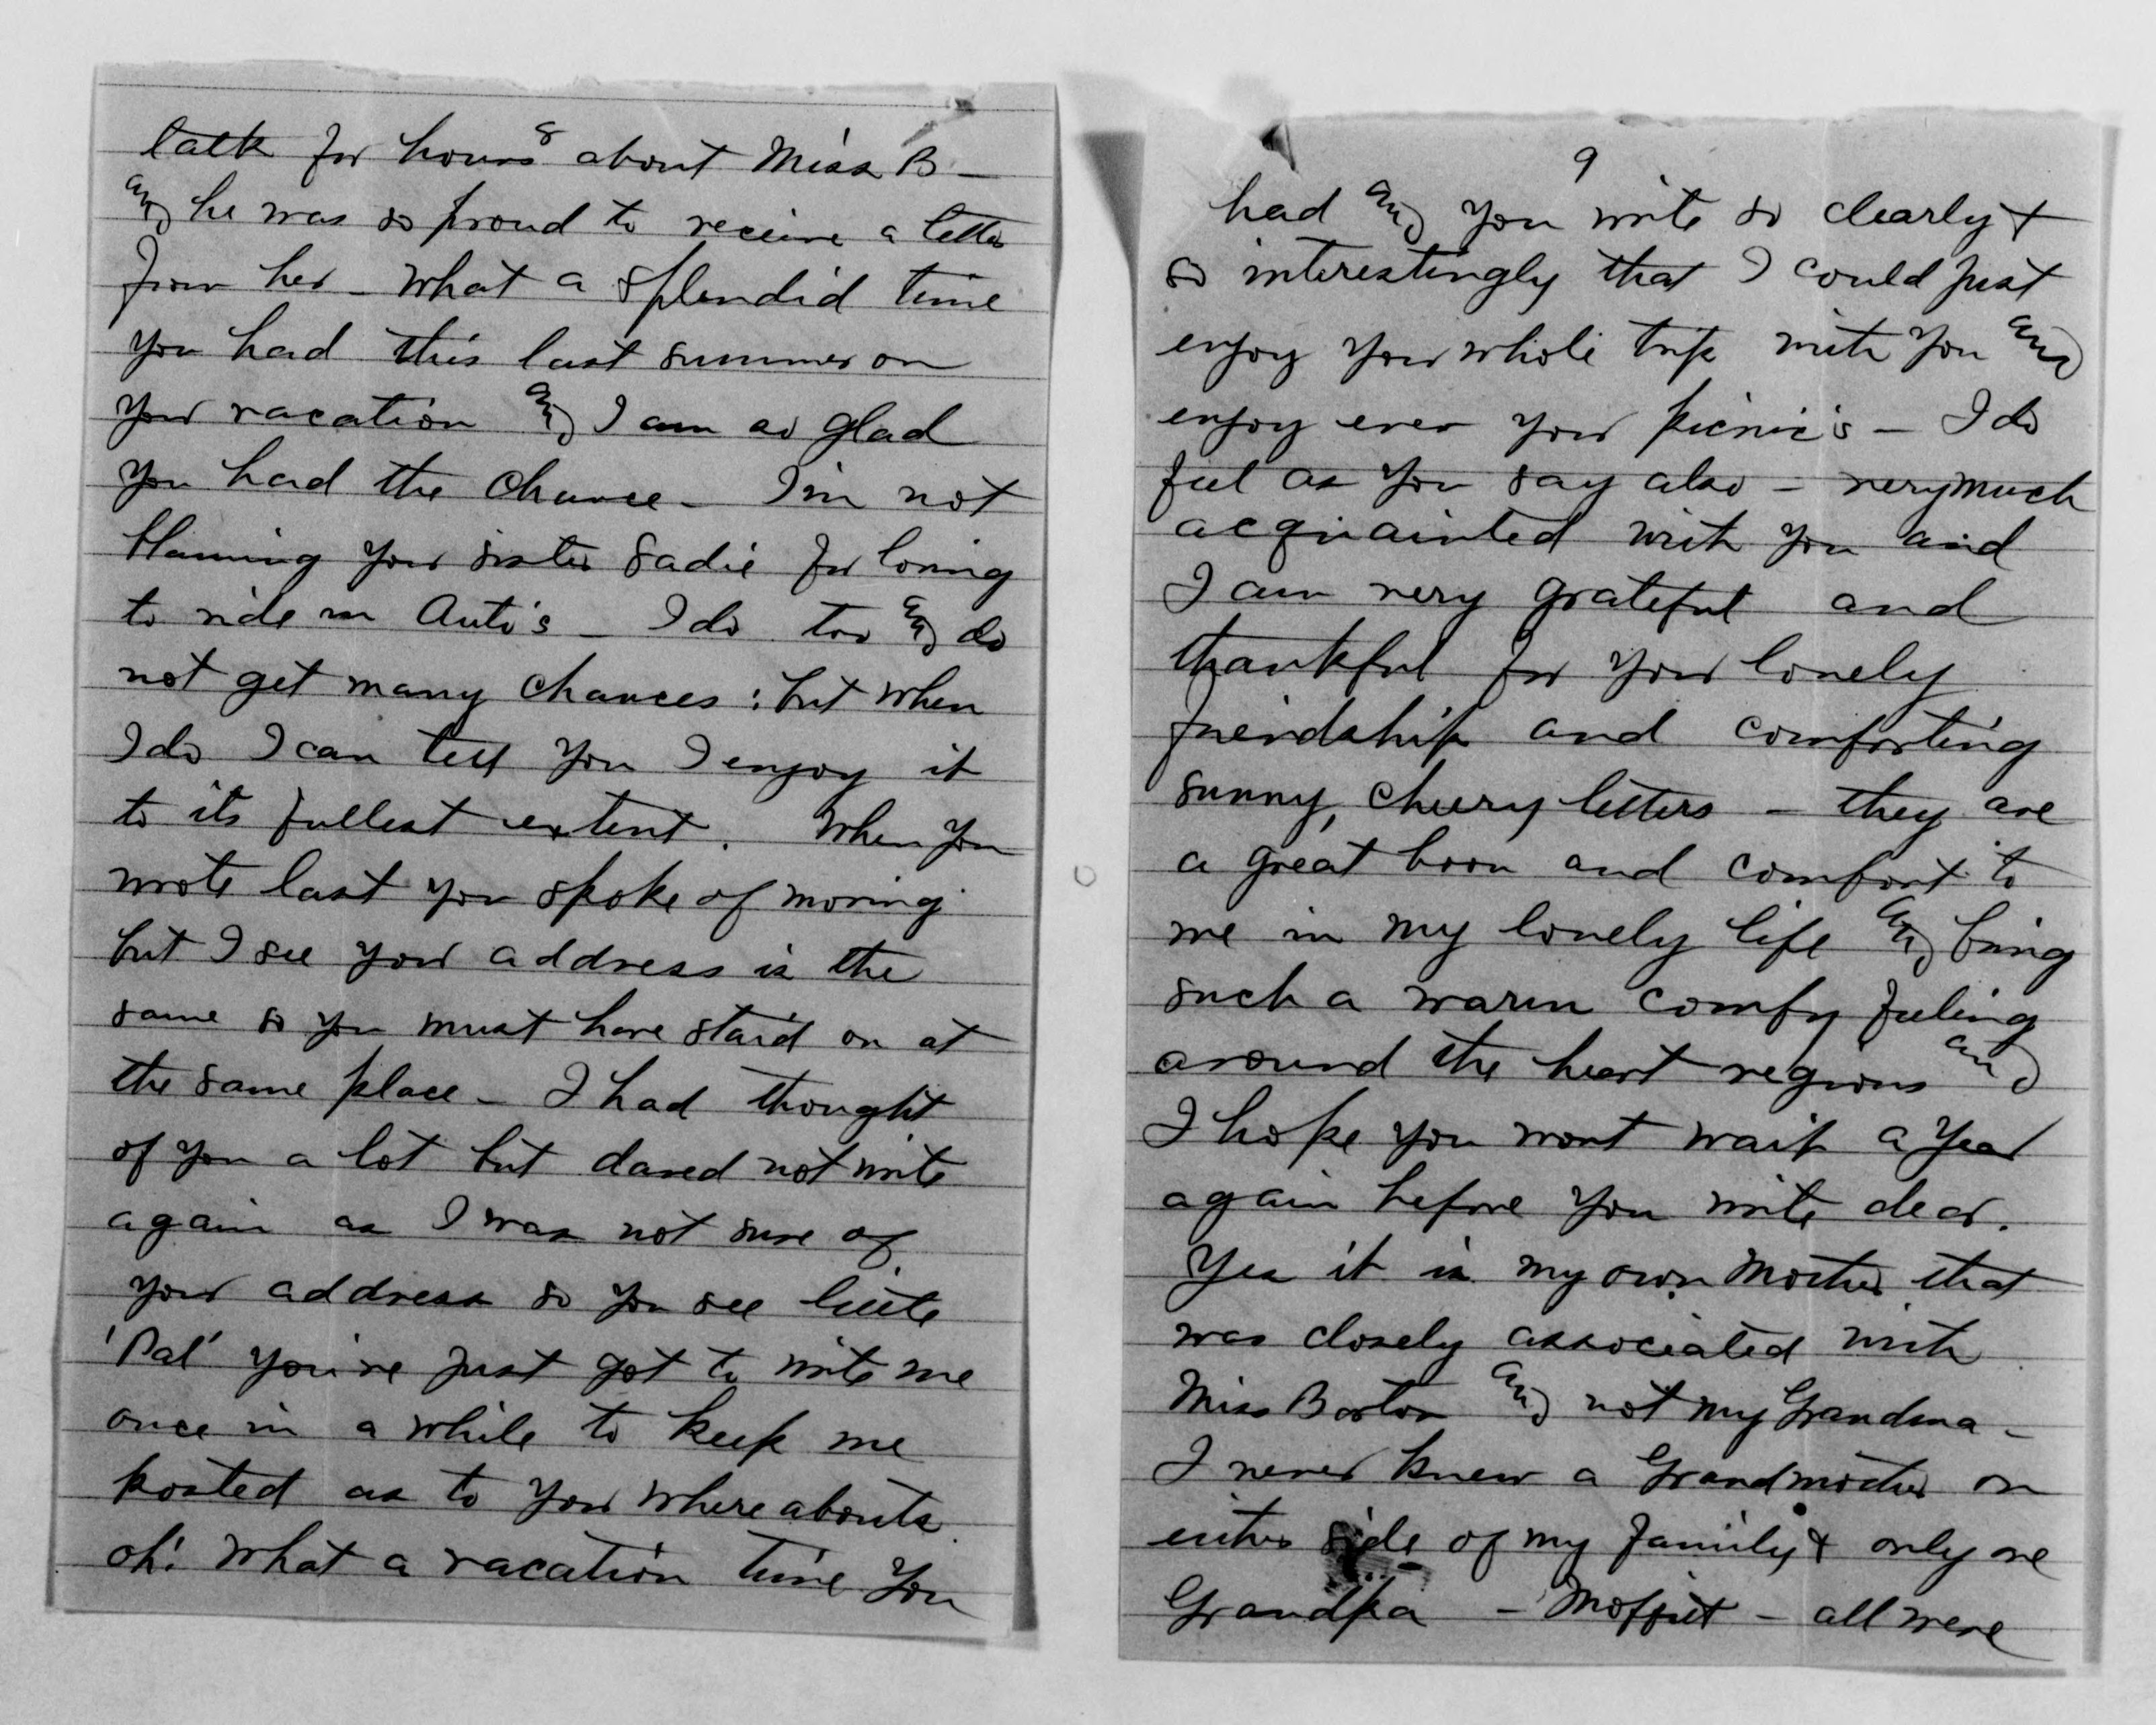 8
talk for hours about Miss B –
and he was so proud to receive a letter
from her – What a splendid time
you had this last summer on
your vacation and I am so glad
you had the chance – I'm not
blaming your sister Sadie for loving
to ride in Auto's – I do too and do
not get many chances : but when
I do I can tell you I enjoy it
to its fullest extent. When you
wrote last you spoke of moving
but I see your address is the
same so you must have staid on at
the same place – I had thought
of you a lot but dared not write
again as I was not sure of
your address so you see little
'Pal' you've just got to write me
once in a while to keep me
posted as to your whereabouts
oh! What a vacation time you
9
had and you write so clearly &
so interestingly that I could just
enjoy your whole trip with you and
enjoy even your picnic's – I do
feel as you say also – very much
acquainted with you and
I am very grateful and
thankful for your lovely
friendship and comforting
sunny, cheery letters – they are
a great boon and comfort to
me in my lonely life and bring
such a warm comfy feeling
around the heart regions and
I hope you wont wait a year
again before you write dear.
Yes it is my own Mother that
was closely associated with
Miss Barton and not my Grandma –
I never knew a Grandmother on
either side of my family & only one
Grandpa – Moffett – all were